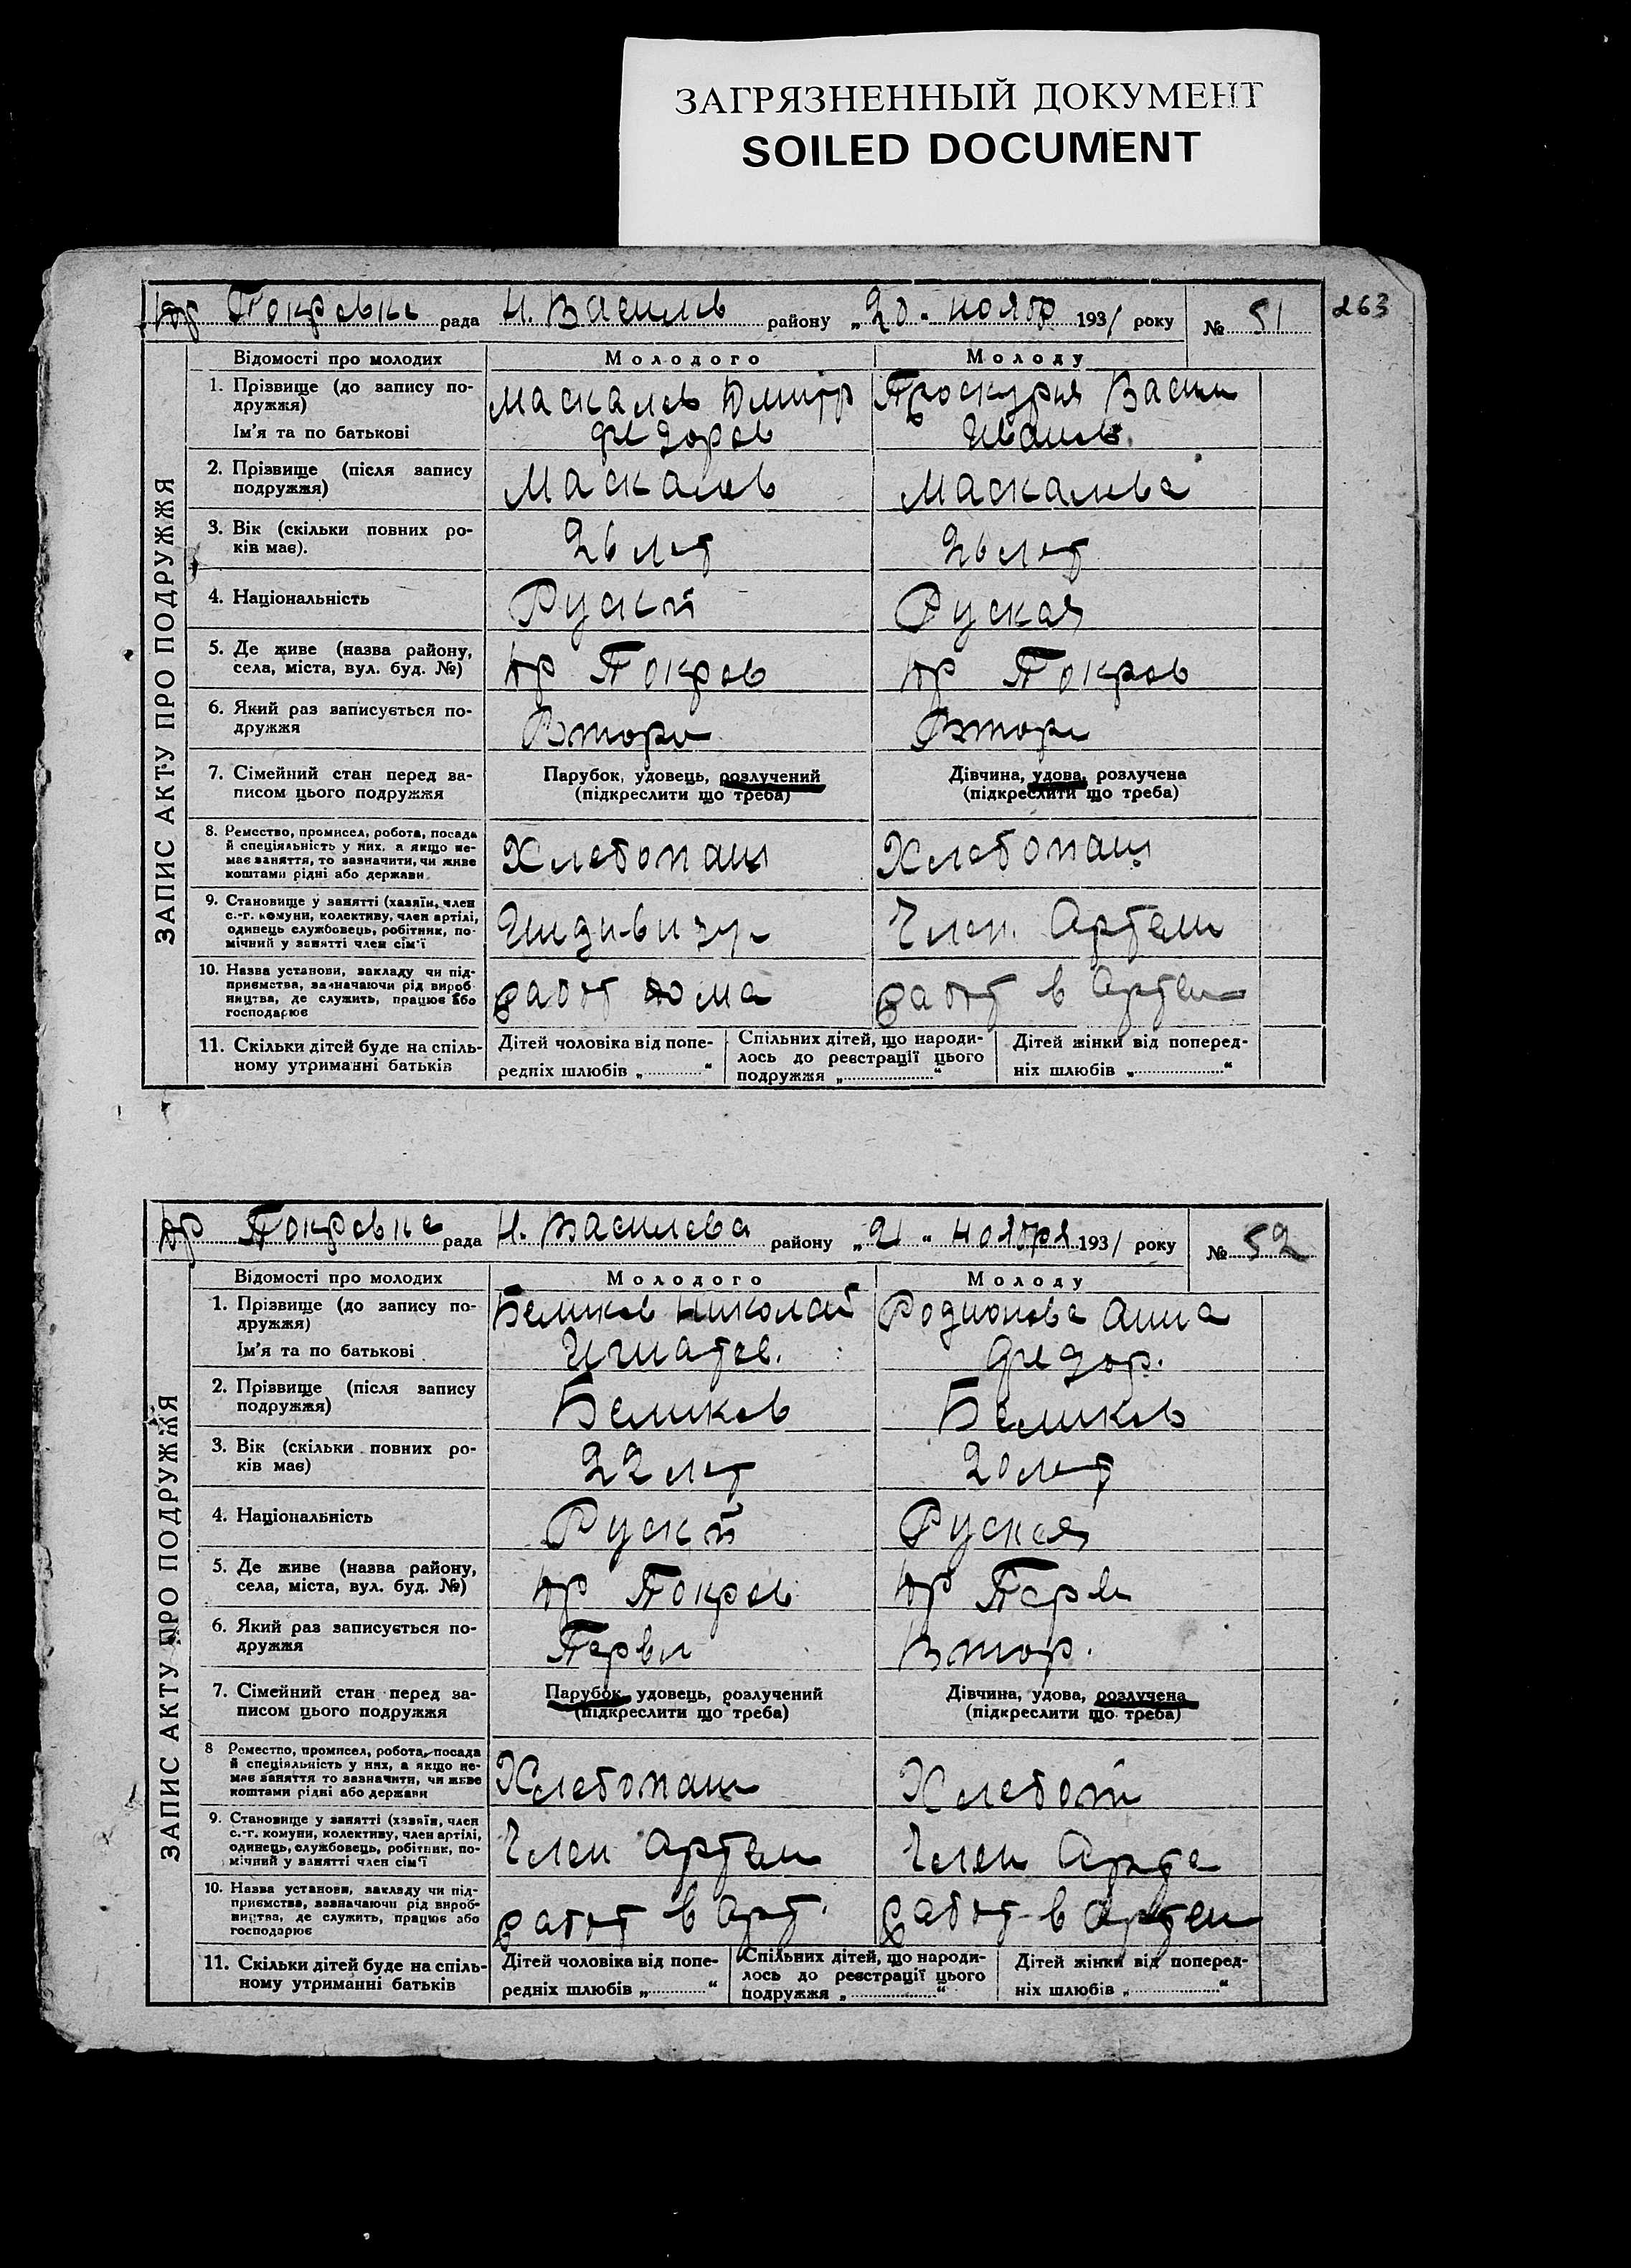 ЗАГРЯЗНЕННЫЙ ДОКУМЕНТ
SOILED DOCUMENT
263
Юр Покровка рада Н. Василев району „20" ноябр 1931 року № 51
ЗАПИС АКТУ ПРО ПОДРУЖЖЯ
Відомості про молодих Молодого Молоду
1. Прізвище (до запису по-
дружжя)
Ім'я та по батькові
Маскалев Дмитр
Федоров
Проскурня Васи
Иванов.
2. Прізвище (після запису
подружжя)
Маскалев Маскалева
3. Вік (скільки повних ро-
ків має).
26 лет 26 лет
4. Національність Руский Руская
5. Де живе (назва району,
села, міста, вул. буд. №)
Юр Покров Юр Покров
6. Який раз записується по-
дружжя
Втори Втори
7. Сімейний стан перед за-
писом цього подружжя
Парубок, удовець, розлучений
(підкреслити що треба)
Дівчина, удова, розлучена
(підкреслити що треба)
8. Ремество, промисел, робота, посада
й спеціяльність у них, а якщо не-
має заняття, то зазначити, чи живе
коштами рідні або держави
Хлебопаш Хлебопаш
9. Становище у занятті (хазяїн, член
с.-г. комуни, колективу, член артілі,
одинець службовець, робітник, по-
мічний у занятті член сім'ї
Член. Артели
10. Назва установи, закладу чи під-
приємства, зазначаючи рід вироб
ництва, де служить, працює або
господарює
работ дома работ в Артели
11. Скільки дітей буде на спіль-
ному утриманні батьків
Дітей чоловіка від попе-
редніх шлюбів „............"
Спільних дітей, що народи-
лось до реєстрації цього
подружжя „..................."
Дітей жінки від поперед-
ніх шлюбів „..................."
Юр Покровка рада Н. Василева району „21" ноября 1931 року № 52
ЗАПИС АКТУ ПРО ПОДРУЖЖЯ
Відомості про молодих Молодого Молоду
1. Прізвище (до запису по-
дружжя)
Ім'я та по батькові
Беликов Николай
Игнатев.
Родионова Анна
Федор.
2. Прізвище (після запису
подружжя)
Беликов Беликов
3. Вік (скільки повних ро-
ків має)
22 лет 20 лет
4. Національність Руский Руская
5. Де живе (назва району,
села, міста, вул. буд. №)
Юр Покров Юр
6. Який раз записується по-
дружжя
Первы Втор.
7. Сімейний стан перед за-
писом цього подружжя
Парубок, удовець, розлучений
(підкреслити що треба)
Дівчина, удова, розлучена
(підкреслити що треба)
8 Ремество, промисел, робота, посада
й спеціяльність у них, а якщо не-
має заняття то зазначити, чи живе
коштами рідні або держави
Хлебопаш Хлебоп
9. Становище у занятті (хазяїн, член
с.-г. комуни, колективу, член артілі,
одинець, службовець, робітник, по-
мічний у занятті член сім'ї
Член Артели Член Арте
10. Назва установи, закладу чи під-
приємства, зазначаючи рід вироб-
ництва, де служить, працює або
господарює
работ в Арт. работ в Артели
11. Скільки дітей буде на спіль-
ному утриманні батьків
Дітей чоловіка від попе-
редніх шлюбів „............"
Спільних дітей, що народи-
лось до реєстрації цього
подружжя „..................."
Дітей жінки від поперед-
ніх шлюбів „..................."